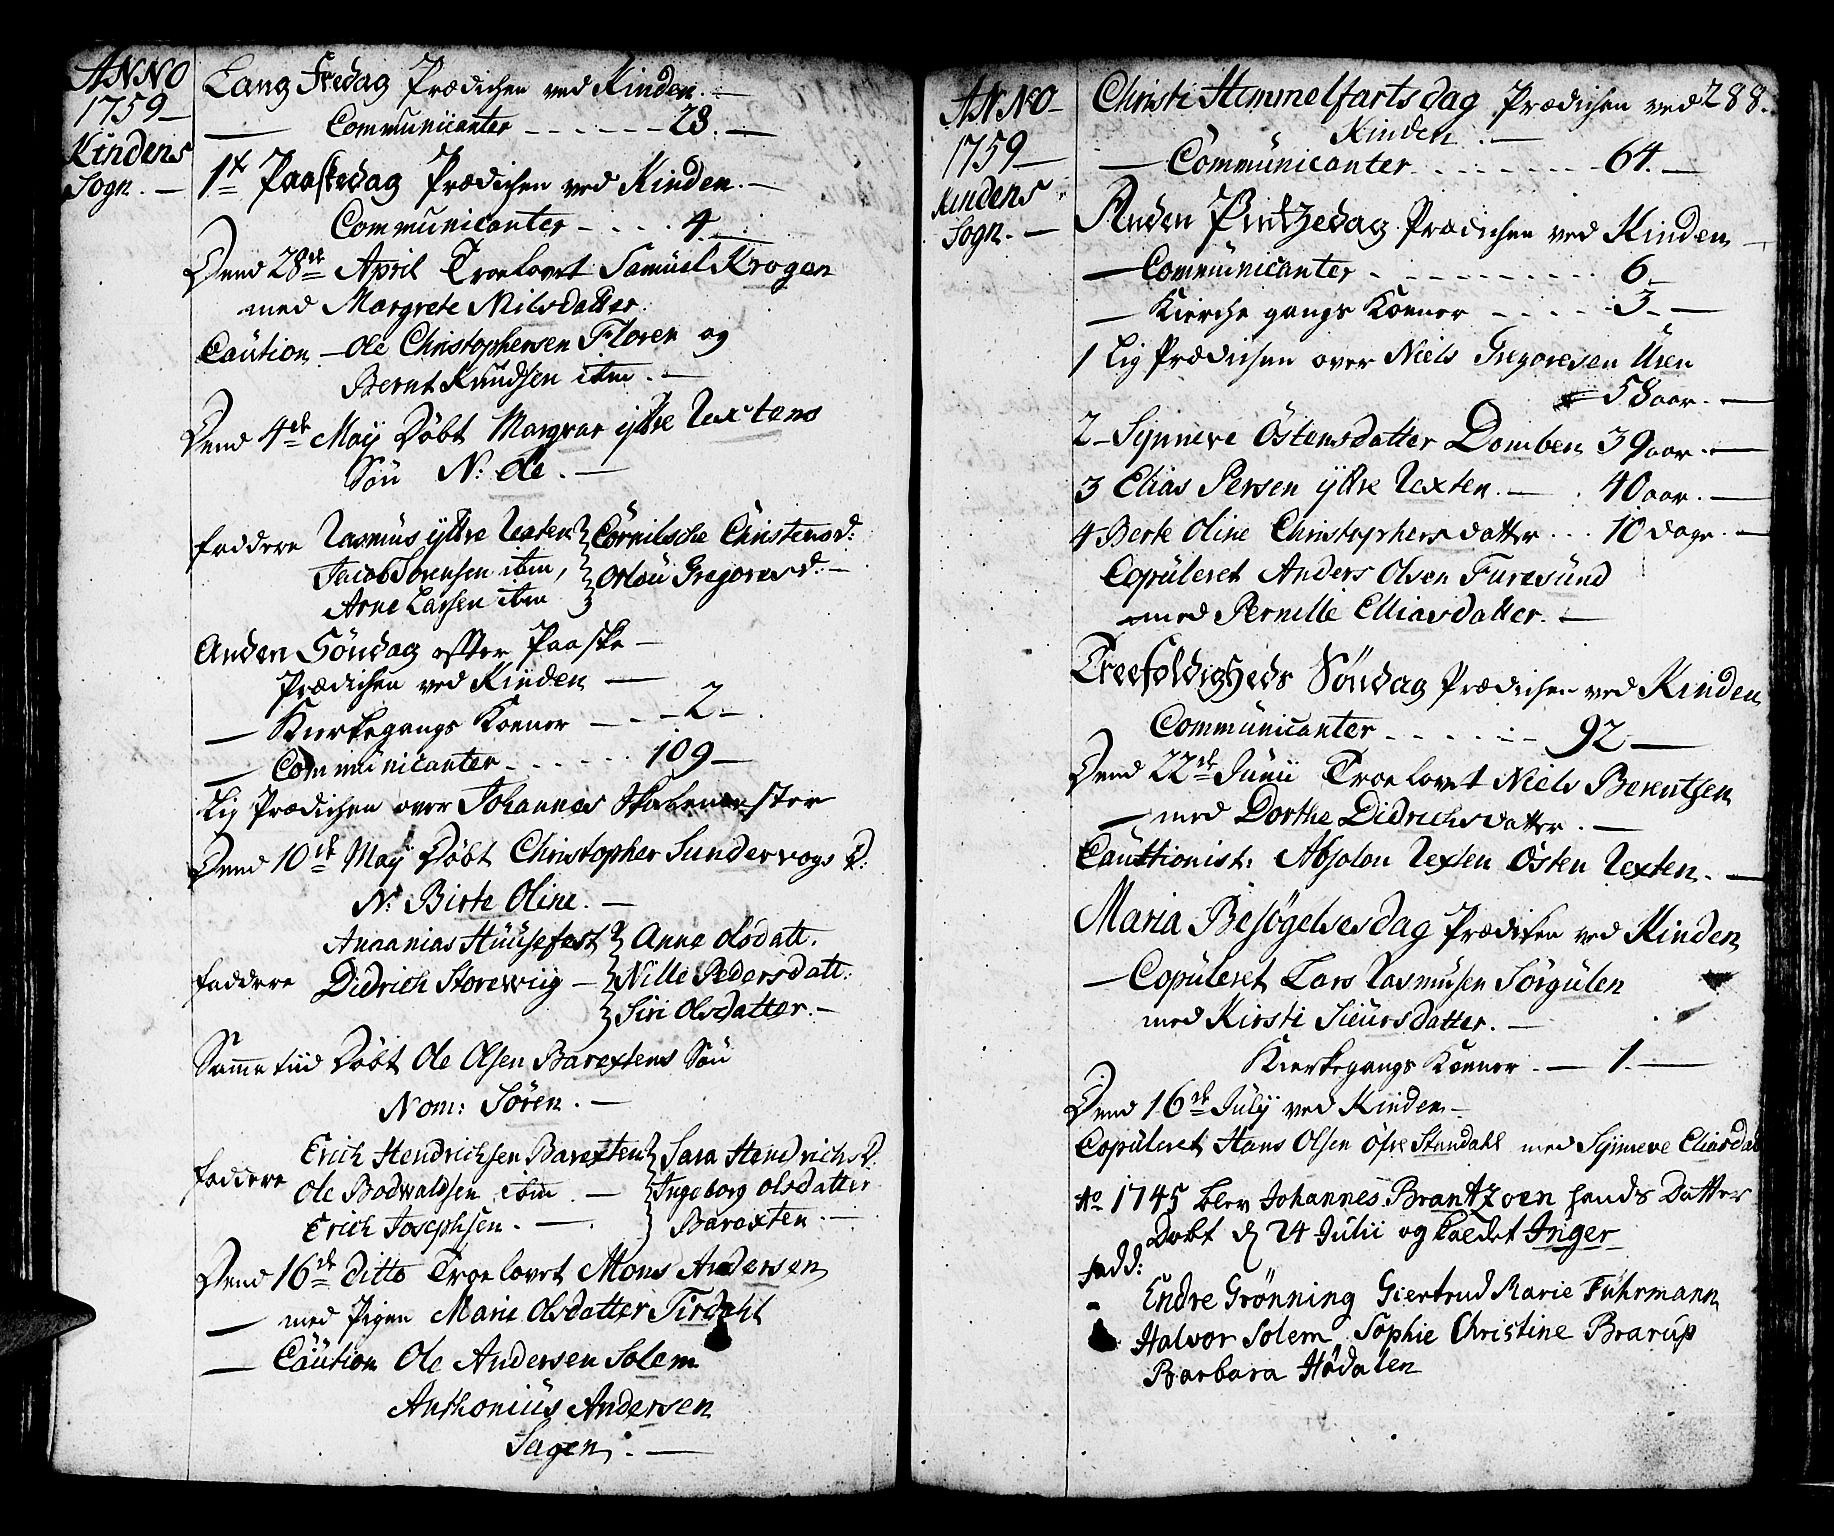 ANNO
1759
Kindens
Sogn.
Lang Fredag Prædichen ved Kinden.
Communiicanter - - - - - - 28.
1te Paaskedag Prædichen ved Kinden.
Communicanter - - - - 4.
Dend 28de April Troelovet Samuel Krogen
med Margrete Nilsdatter
Caution - Ole Christophersen Floren og
Bernt Knudsen ibm.
Dend 4de Maÿ Döbt ytre Rextens
Sön N: Ole.
faddere Rasmus ytre Rexten Cornilsche Christensd:
Jacob Sorensen ibm, Orlou Gregoresd:
Arne Larsen ibm
Anden Söndag efter Paaske
Prædichen ved Kinden
Kierkegangs Koener - - - 2
Communicanter - - - - - - 109
Lig Prædichen over Johannes
Dend 10de Maÿ Döbt Christopher Sundervogs D:
N: Birte Oline.
Ananias Huusefest Anne Olsdatt.
faddere Didrich Storewiig - Nille Pedersdatt:
Siri Olsdatter.
Samme tiid Döbt Ole Olsen Barextens Sön
Nom: Sören.
Erich Hendrichsen Barexten Sara HendrichsD:
faddere Ole Bodwaldsen ibm. Ingeborg Olsdatter
Erich Josephsen. Barexten
Dend 16de ditto Troelovet Mons Andersen
med Pigen Marie Olsdatter Tirdahl
Caution Ole Andersen Solem
Anthonius Andersen
Sagen.
ANNO
1759
Kindens
Sogn.
Christi Himmelfarts dag Prædichen ved 288.
Kinden.
Communicanter - - - - - - - - 64.
Anden Pintzedag Prædichen ved Kinden
Communicanter - - - - - - - - - 6
Kierche gangs Koener - - - - - 3.
1 Lig Prædichen over Niels Gregoresen Uren
58 aar.
2 - Synneve Östensdatter Domben 39 aar.
3 Elias Persen ytre Rexten. 40 aar.
4 Berte Oline Christophersdatter . . . 10 dage.
Copuleret Anders Olsen Furesund
med Pernille Elliasdatter.
Treefoldigheds Söndag Prædichen ved Kinden
Communicanter - - - - - - 92
Dend 22de Junii Troelovet Niels Berentsen
med Dorthe Didrichsdatter.
Cauttionist: Absolon Rexten Östen Rexten.
Maria Besögelsesdag Prædiken ved Kinden
Copuleret Lars Rasmusen Sörgulen
med Kirsti Siursdatter.
Kierkegangs Koener. - 1.
Dend 16de Julÿ ved Kinden
Copuleret Hans Olsen Öfre Standahl med Synneve Eliasdat
Ao 1745 blev Johannes Brantzoen hends Datter
Döbt d 24 Julii og kaldet Inger
Fadd:
Endre Grönning Giertrud Marie Fuhrmann
Halvor Solem Sophie Christine Brarup
Barbara Hödalen